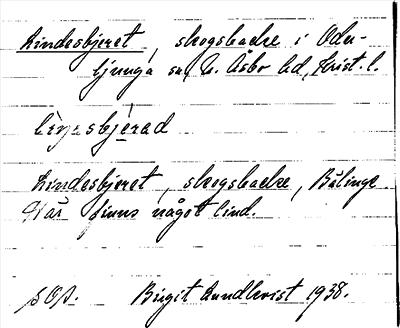 Lindesbjeret, skogsbacke i Oder-
ljunga sn, N. Åsbo hd, Krist. l.
Lindesbjeret, skogsbacke, Bälinge.
Här finns något lind.
Birgit Lundkvist 1938.